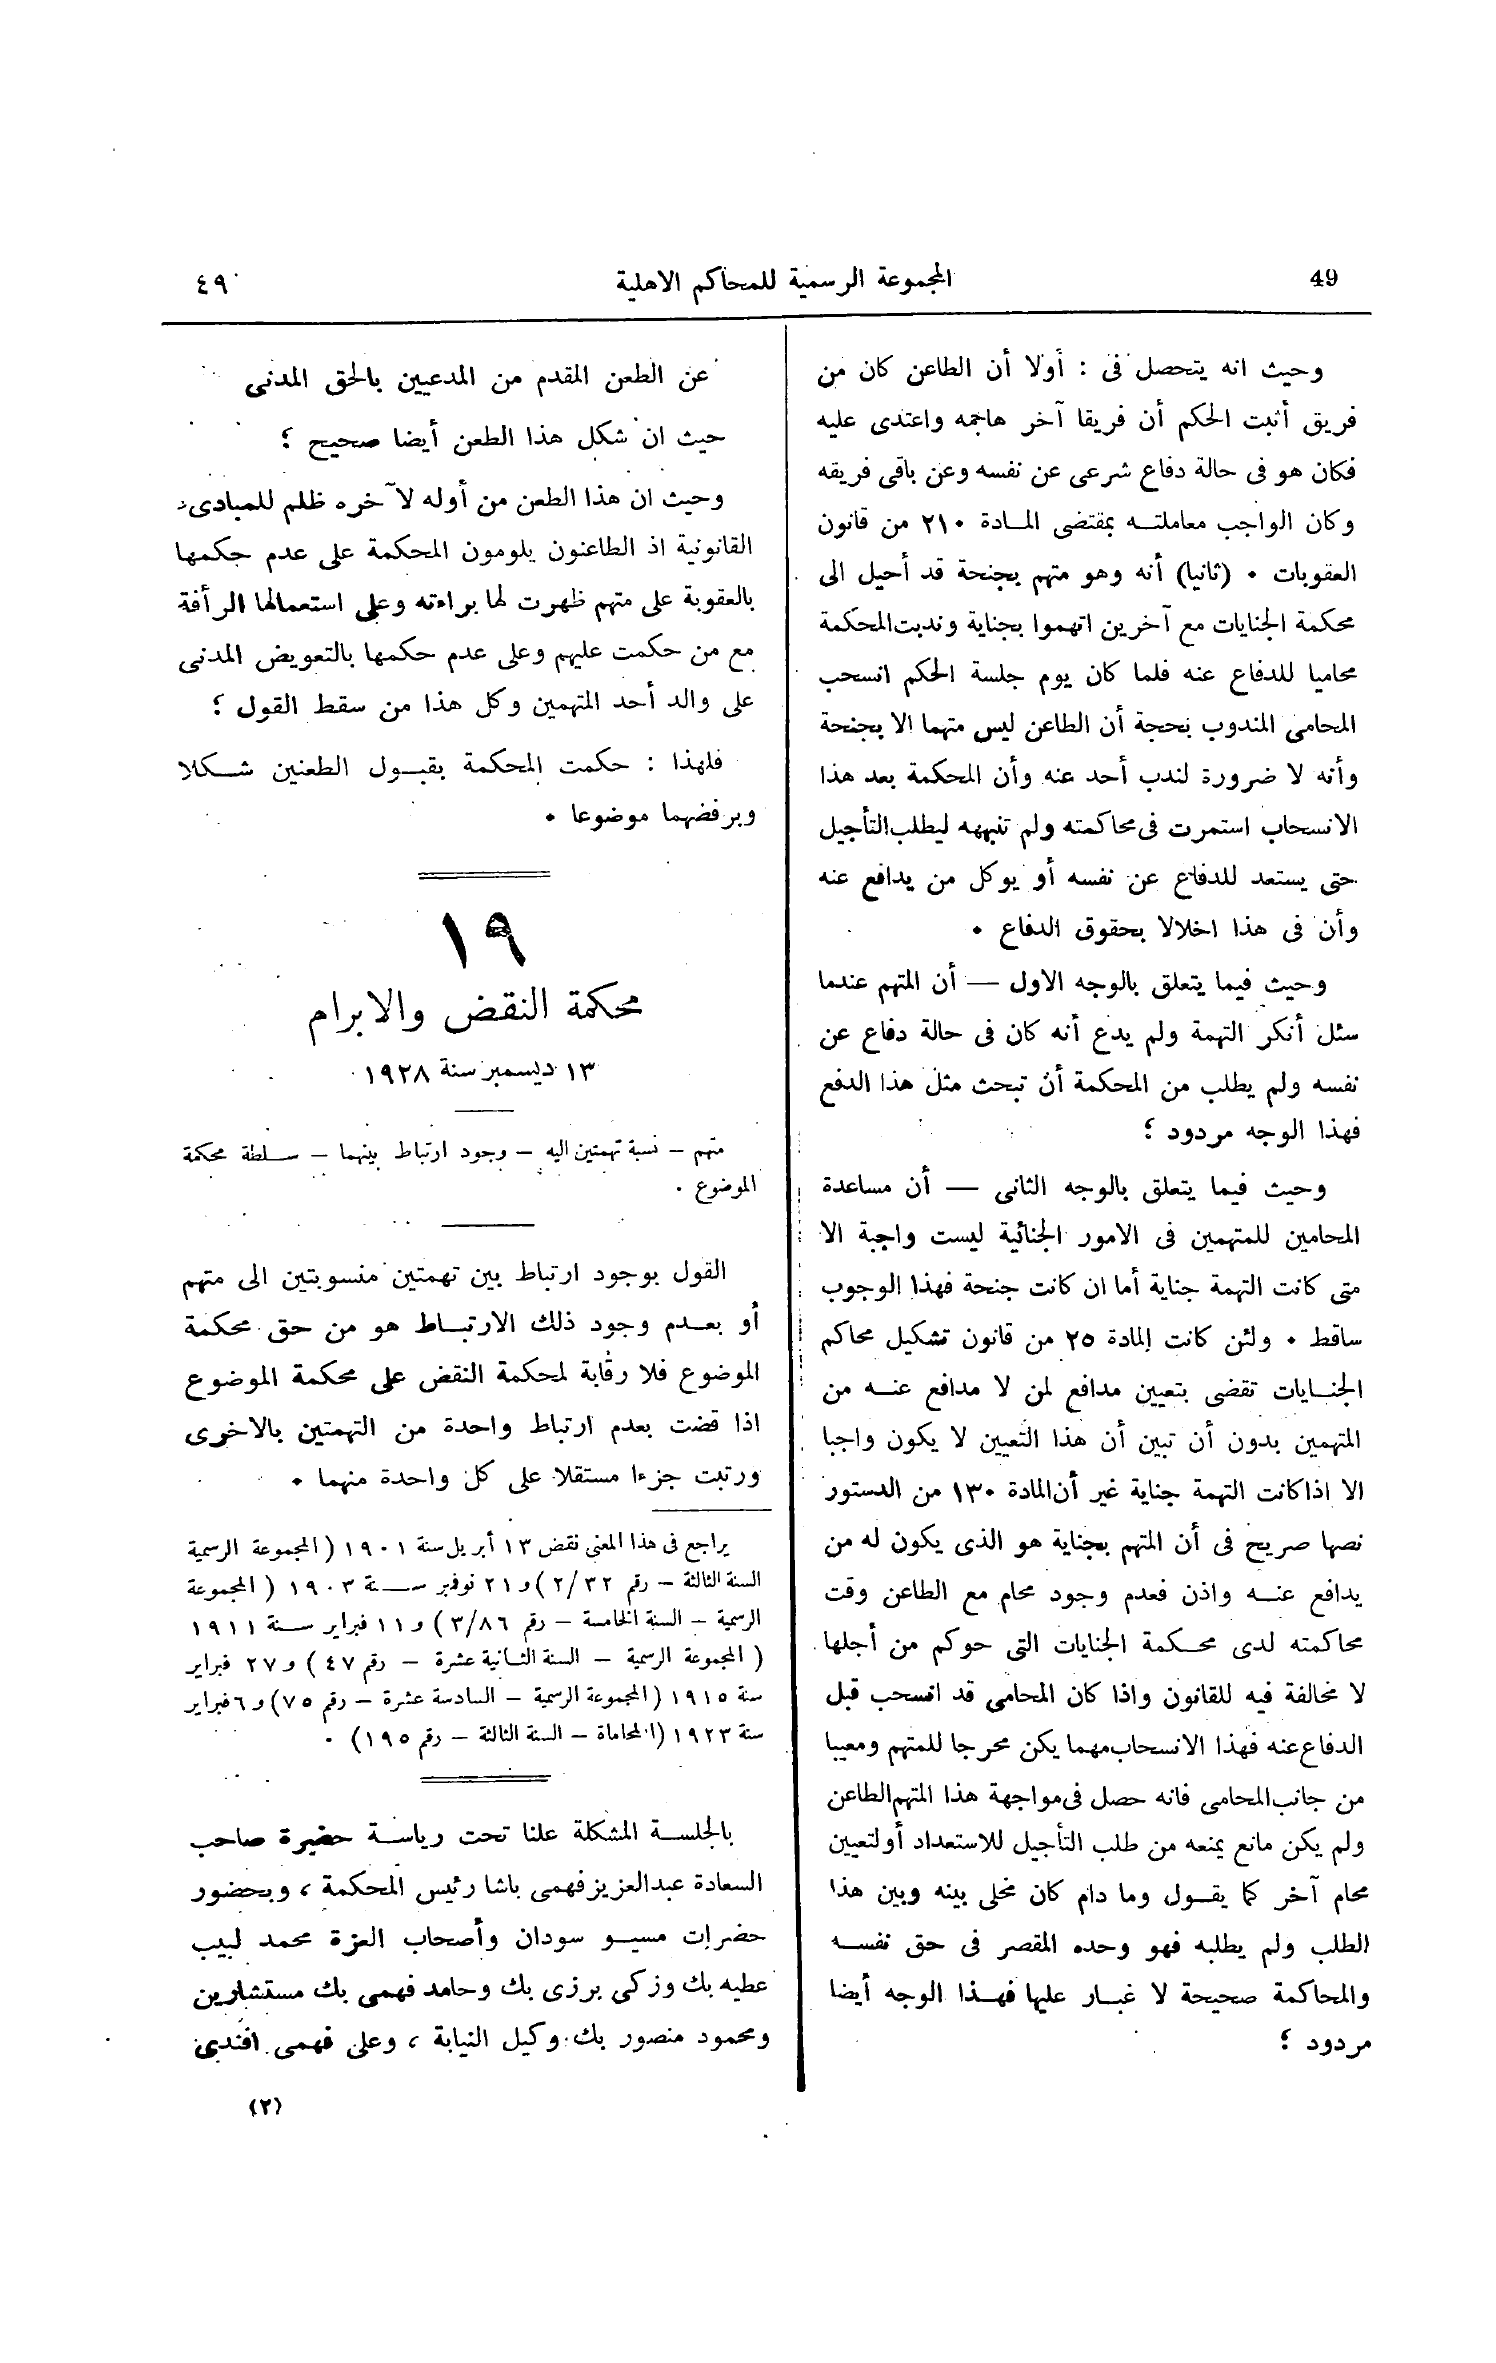 49 المجموعة الرسمية للمحاكم الاهلية ٤٩
وحيث انه يتحصل فى : أولا أن الطاعن كان من
فريق أثبت الحكم أن فريقا آخر هاجمه واعتدى عليه
فكان هو فى حالة دفاع شرعى عن نفسه وعن باقى فريقه
وكان الواجب معاملتـه بمقتضى المـادة ٢١٠ من قانون
العقوبات ٠ (ثانيا) أنه وهو متهم بجنحة قد أحيل الى
محكمة الجنايات مع آخرين اتهموا بجناية وندبت المحكمة
محاميا للدفاع عنه فلما كان يوم جلسة الحكم انسحب
المحامى المندوب بحجة أن الطاعن ليس متهما الا بجنحة
وأنه لا ضرورة لندب أحد عنه وأن المحكمة بعد هذا
الانسحاب استمرت فى محاكمته ولم تنبهه ليطلب التأجيل
حتى يستعد للدفاع عن نفسه أو يوكل من يدافع عنه
وأن فى هذا اخلالا بحقوق الدفاع ٠
وحيث فيما يتعلق بالوجه الاول — أن المتهم عندما
سئل أنكر التهمة ولم يدع أنه كان فى حالة دفاع عن
نفسه ولم يطلب من المحكمة أن تبحث مثل هذا الدفع
فهذا الوجه مردود ؛
وحيث فيما يتعلق بالوجه الثانى — أن مساعدة
المحامين للمتهمين فى الامور الجنائية ليست واجبة الا
متى كانت التهمة جناية أما ان كانت جنحة فهذا الوجوب
ساقط ٠ ولئن كانت المادة ٢٥ من قانون تشكيل محاكم
الجنـايات تقضى بتعيين مدافع لمن لا مدافع عنـه من
المتهمين بدون أن تبين أن هذا التعيين لا يكون واجبا
الا اذا كانت التهمة جناية غير أن المادة ١٣٠ من الدستور
نصها صريح فى أن المتهم بجناية هو الذى يكون له من
يدافع عنـه واذن فعدم وجود محام مع الطاعن وقت
محاكمته لدى محـكمة الجنايات التى حوكم من أجلها
لا مخالفة فيه للقانون واذا كان المحامى قد انسحب قبل
الدفاع عنه فهذا الانسحاب مهما يكن محرجا للمتهم ومعيبا
من جانب المحامى فانه حصل فى مواجهة هذا المتهم الطاعن
ولم يكن مانع يمنعه من طلب التأجيل للاستعداد أو لتعيين
محام آخر كما يقـول وما دام كان مخلى بينه وبين هذا
الطلب ولم يطلبه فهو وحده المقصر فى حق نفسـه
والمحاكمة صحيحة لا غبـار عليها فهـذا الوجه أيضا
مردود ؛
عن الطعن المقدم من المدعيين بالحق المدنى
حيث ان شكل هذا الطعن أيضا صحيح ؛
وحيث ان هذا الطعن من أوله لآخره ظلم للمبادىء
القانونية اذ الطاعنون يلومون المحكمة على عدم حكمها
بالعقوبة على متهم ظهرت لها براءته وعلى استعمالها الرأفة
مع من حكمت عليهم وعلى عدم حكمها بالتعويض المدنى
على والد أحد المتهمين وكل هذا من سقط القول ؛
فلهذا : حكمت المحكمة بقبـول الطعنين شـكلا
وبرفضهما موضوعا ٠
١٩
محكمة النقض والابرام
١٣ ديسمبر سنة ١٩٢٨
متهم – نسبة تهمتين اليه – وجود ارتباط بينهما – سـلطة محكمة
الموضوع .
القول بوجود ارتباط بين تهمتين منسوبتين الى متهم
أو بعـدم وجود ذلك الارتبـاط هو من حق محكمة
الموضوع فلا رقابة لمحكمة النقض على محكمة الموضوع
اذا قضت بعدم ارتباط واحدة من التهمتين بالاخرى
ورتبت جزءا مستقلا على كل واحدة منهما ٠
يراجع فى هذا المعنى نقض ١٣ أبريل سنة ١٩٠١ (المجموعة الرسمية
السنة الثالثة – رقم ٢/٣٢) و ٢١ نوفمبر سـنة ١٩٠٣ ( المجموعة
الرسمية – السنة الخامسة – رقم ٣/٨٦ ) و ١١ فبراير سـنة ١٩١١
( المجموعة الرسمية – السنة الثـانية عشرة – رقم ٤٧ ) و ٢٧ فبراير
سنة ١٩١٥ (المجموعة الرسمية – السادسة عشرة – رقم ٧٥) و ٦ فبراير
سنة ١٩٢٣ (المحاماة – السنة الثالثة – رقم ١٩٥) .
بالجلسـة المشكلة علنا تحت رياسـة حضرة صاحب
السعادة عبد العزيز فهمى باشا رئيس المحكمة ، وبحضور
حضرات مسيـو سودان وأصحاب العزة محمد لبيب
عطيه بك وزكى برزى بك وحامد فهمى بك مستشارين
ومحمود منصور بك وكيل النيابة ، وعلى فهمى افندى
(٢)